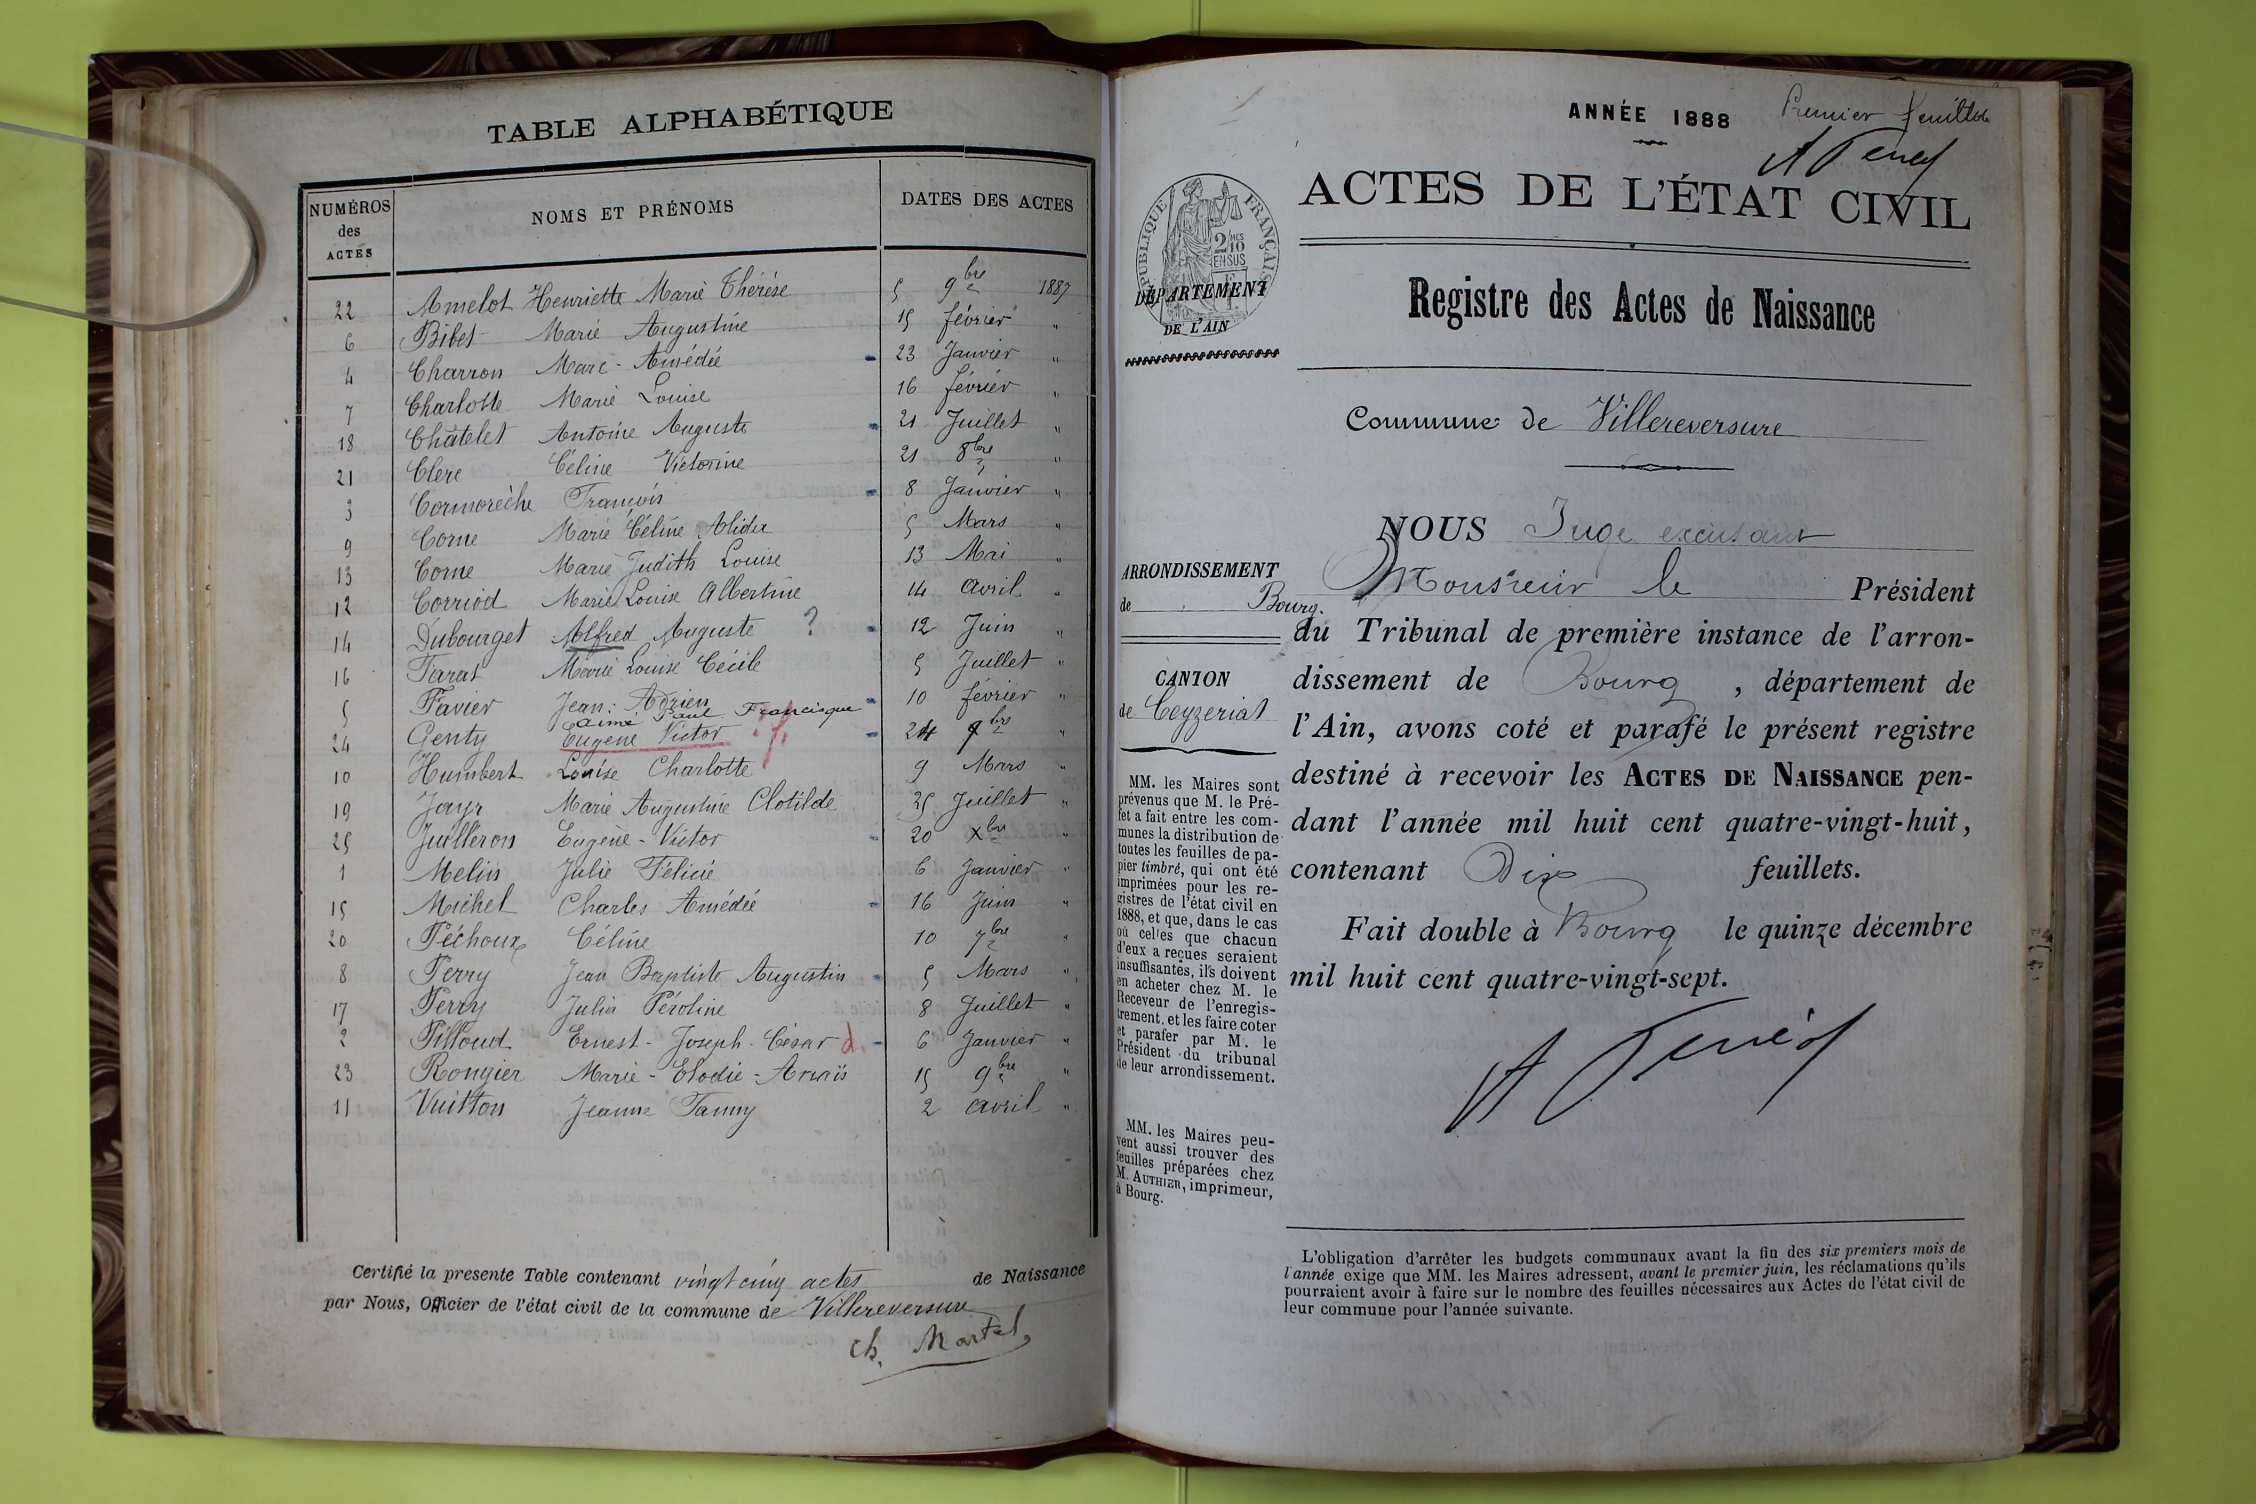 TABLE ALPHABÉTIQUE
NUMÉROS des ACTES NOMS ET PRÉNOMS DATES DES ACTES
22 Amelot Henriette Marie Thérèse 5 9bre 1887
6 Bibet Marie Augustine 15 février "
4 Charron Marc - Amédée 23 Janvier "
7 Charlotte Marie Louise 16 février "
18 Châtelet Antoine Auguste 21 Juillet "
21 Clerc Céline Victorine 21 8bre "
3 Cormorèche François 8 Janvier "
9 Corne Marie Céline Alida 5 Mars "
13 Corne Marie Judith Louise 13 Mai "
12 Corriod Marie Louise Albertine 14 avril "
14 Dubourget Alfred Auguste ? 12 Juin "
16 Farat Marie Louise Cécile 5 Juillet "
5 Favier Jean - Adrien 10 février "
aimé Paul Francisque
24 Genty Eugène Victor 24 9bre "
10 Humbert Louise Charlotte 9 Mars "
19 Jayr Marie Augustine Clotilde 25 Juillet "
25 Juilleron Eugène - Victor 20 Xbre "
1 Melin Julie Félicie 6 Janvier "
15 Michel Charles Amédée 16 Juin "
20 Péchoux Céline 10 7bre "
8 Perry Jean Baptiste Augustin 5 Mars "
17 Perry Julia Péroline 8 Juillet "
2 Pilloud Ernest - Joseph - César d. 6 Janvier "
23 Rougier Marie - Elodie - Anaïs 15 9bre "
11 Vuitton Jeanne Fanny 2 avril "
Certifié la presente Table contenant vingt cinq actes de Naissance
par Nous, Officier de l'état civil de la commune de Villereversure
Ch. Martel
ANNÉE 1888 Premier feuillet
ACTES DE L'ÉTAT CIVIL
RÉPUBLIQUE FRANÇAISE
2/10 EN SUS
DÉPARTEMENT
DE L'AIN
Registre des Actes de Naissance
Commune de Villereversure
NOUS Juge excusant
Monsieur le Président
du Tribunal de première instance de l'arron-
dissement de Bourg, département de
l'Ain, avons coté et parafé le présent registre
destiné à recevoir les ACTES DE NAISSANCE pen-
dant l'année mil huit cent quatre-vingt-huit,
contenant Dix feuillets.
Fait double à Bourg le quinze décembre
mil huit cent quatre-vingt-sept.
ARRONDISSEMENT
de Bourg.
CANTON
de Ceyzeriat
MM. les Maires sont
prévenus que M. le Pré-
fet a fait entre les com-
munes la distribution de
toutes les feuilles de pa-
pier timbré, qui ont été
imprimées pour les re-
gistres de l'état civil en
1888, et que, dans le cas
où celles que chacun
d'eux a reçues seraient
insuffisantes, ils doivent
en acheter chez M. le
Receveur de l'enregis-
trement, et les faire coter
et parafer par M. le
Président du tribunal
de leur arrondissement.
MM. les Maires peu-
vent aussi trouver des
feuilles préparées chez
M. AUTHIER, imprimeur,
à Bourg.
L'obligation d'arrêter les budgets communaux avant la fin des six premiers mois de
l'année exige que MM. les Maires adressent, avant le premier juin, les réclamations qu'ils
pourraient avoir à faire sur le nombre des feuilles nécessaires aux Actes de l'état civil de
leur commune pour l'année suivante.